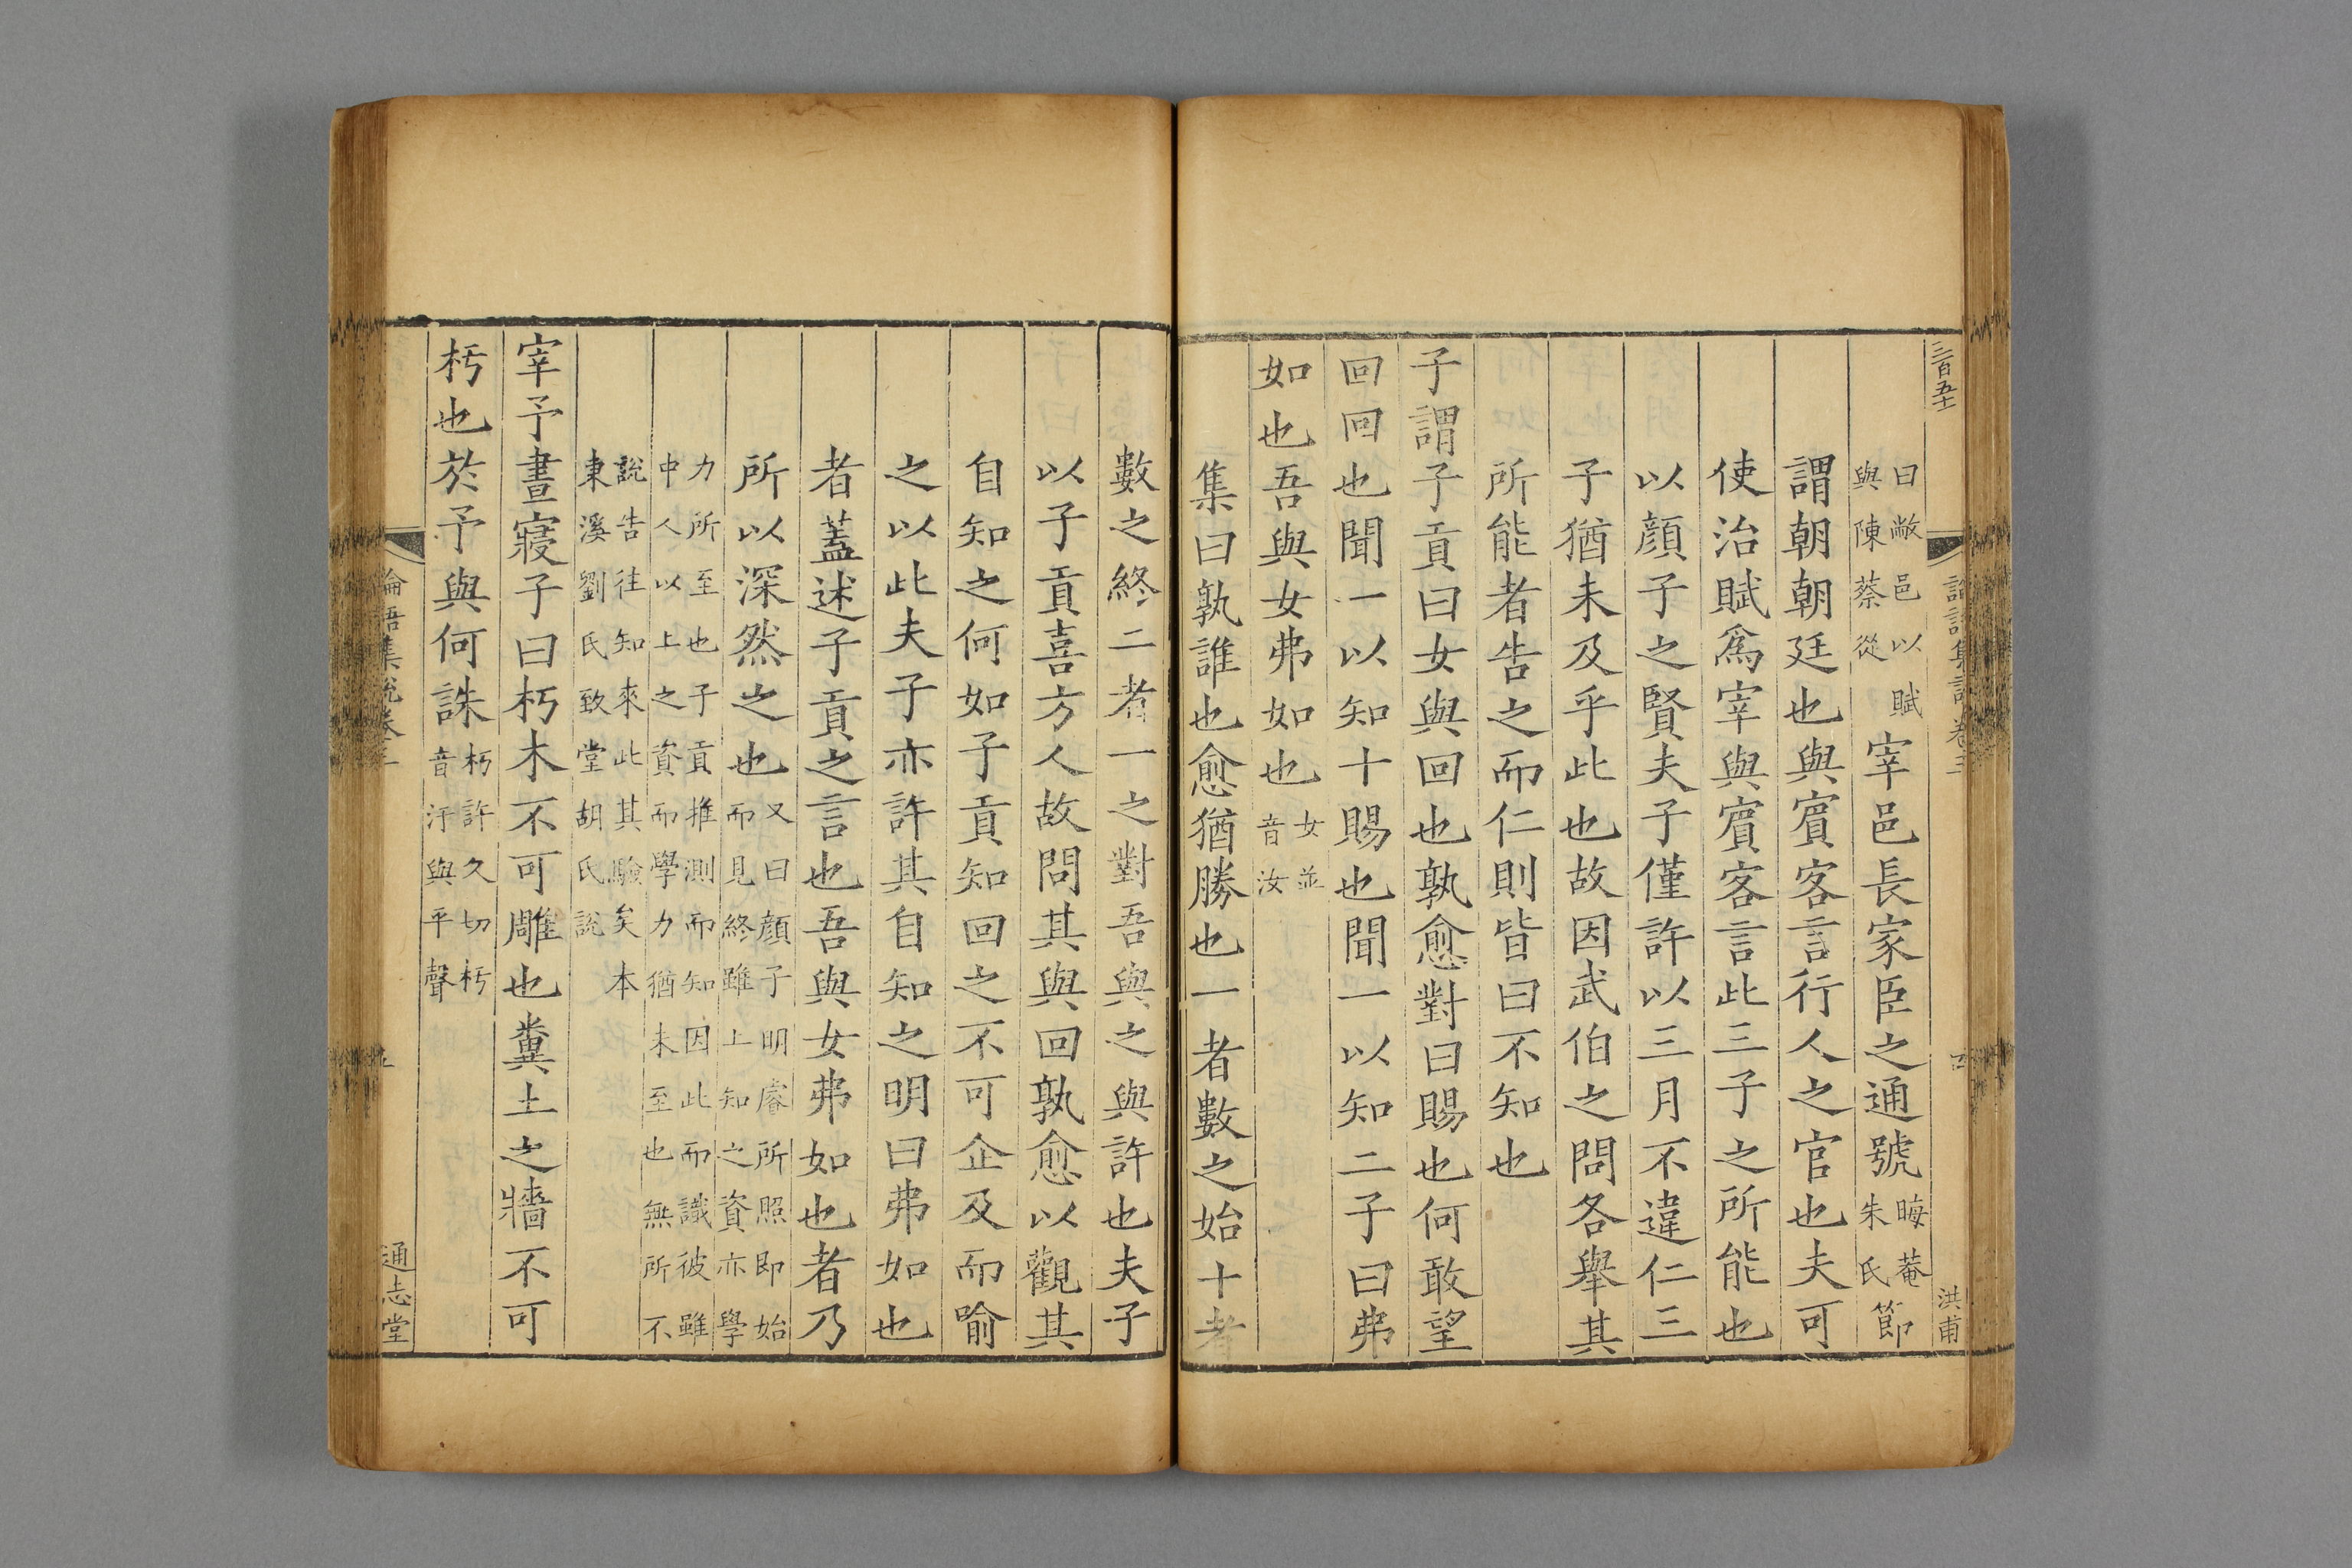 三百五十
論語集說卷三
四
洪甫
曰敝邑以賦
與陳蔡從
宰邑長家臣之通號
晦菴
朱氏
節
謂朝朝廷也與賓客言行人之官也夫可
使治賦爲宰與賓客言此三子之所能也
以顏子之賢夫子僅許以三月不違仁三
子猶未及乎此也故因武伯之問各舉其
所能者告之而仁則皆曰不知也
子謂子貢曰女與回也孰愈對曰賜也何敢望
回回也聞一以知十賜也聞一以知二子曰弗
如也吾與女弗如也
女並
音汝
集曰孰誰也愈猶勝也一者數之始十者
數之終二者一之對吾與之與許也夫子
以子貢喜方人故問其與回孰愈以觀其
自知之何如子貢知回之不可企及而喻
之以此夫子亦許其自知之明曰弗如也
者蓋述子貢之言也吾與女弗如也者乃
所以深然之也
又曰顏子明睿所照即始
而見終雖上知之資亦學
力所至也子貢推測而知因此而識彼雖
中人以上之資而學力猶未至也無所不
說告往知來此其驗矣本
東溪劉氏致堂胡氏說
宰予晝寢子曰朽木不可雕也糞土之牆不可
杇也於予與何誅
朽許久切杇
音汙與平聲
論語集說卷三
通志堂